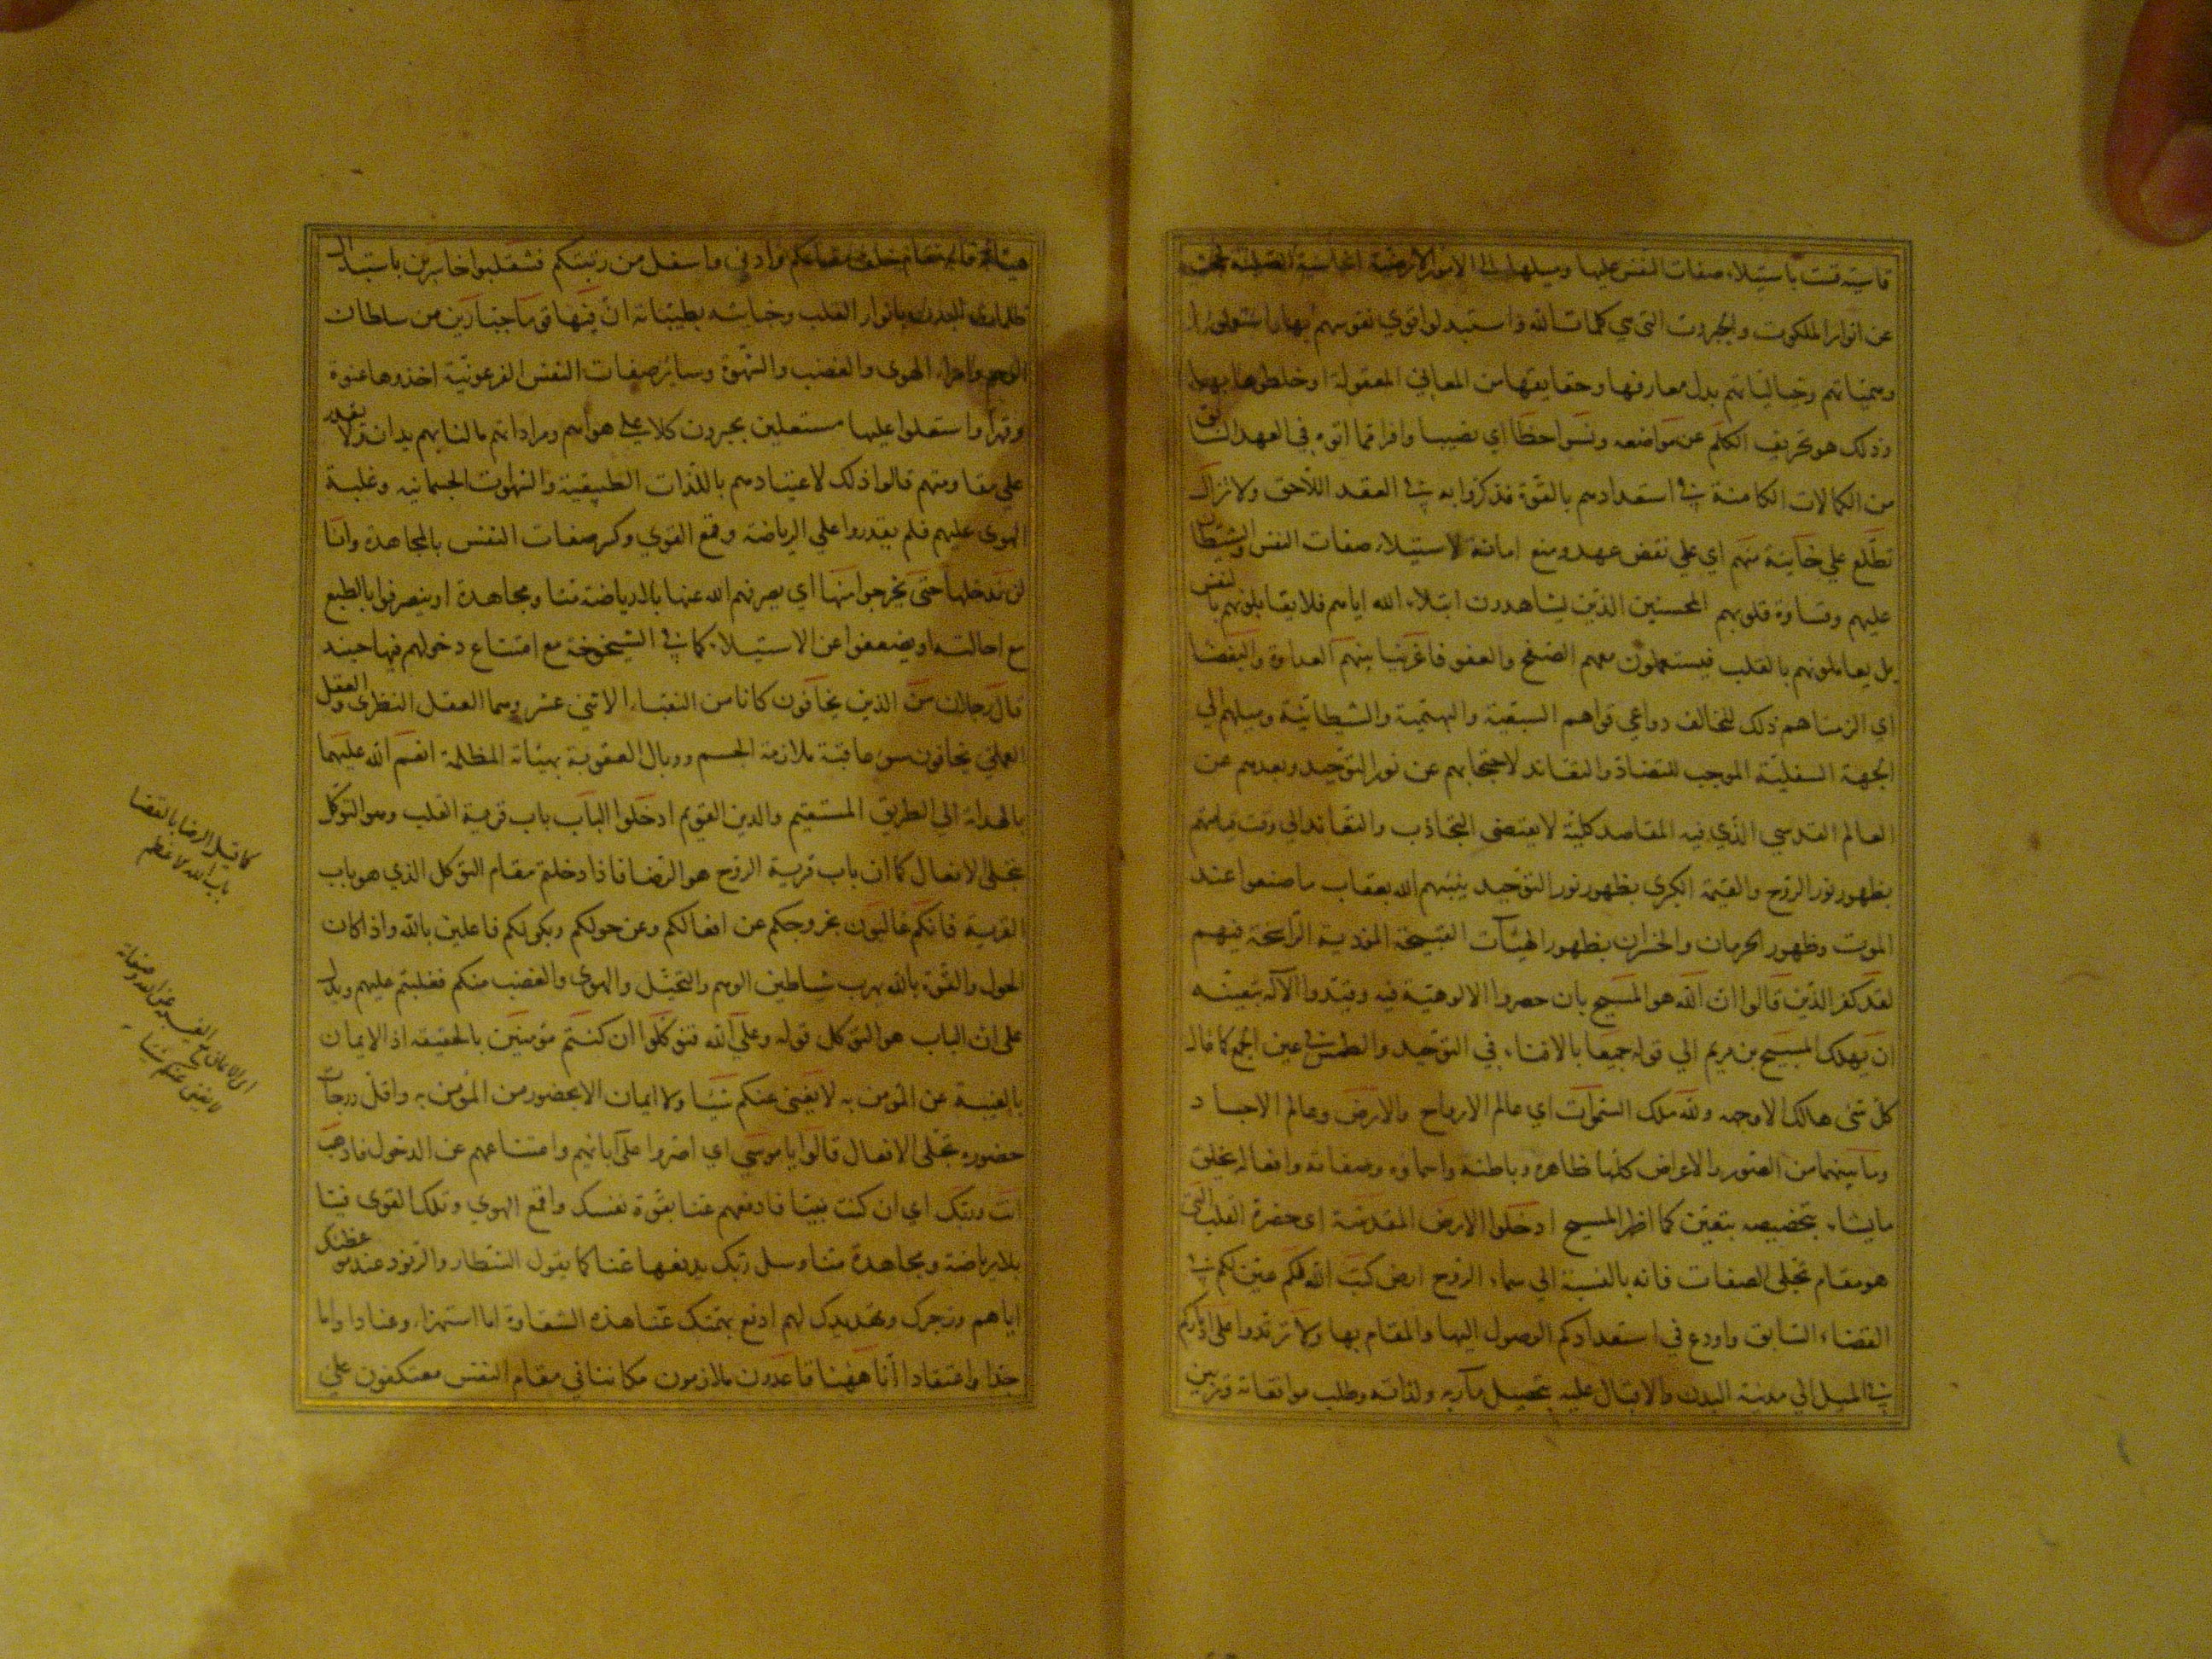 قاسية قست باستيلاء صفات النفس عليها وميلها الى الامور الارضية
عن انوار الملكوت والجبروت التي هي كلمات الله واستبدلوا قوي نفوسهم بها واستعملوا
وهمياتهم وخيالياتهم بدل معارفها وحقايقها من المعاني المعقولة او خلطوها بها
وذلك هو تحريف الكلم عن مواضعه ونسوا حظا اي نصيبا وافرا مما اتوه في العهد السابق
من الكمالات الكامنة في استعدادهم بالقوة فذكروا به في العقد اللاحق ولا تزال
تطلع علي خاينة منهم اي علي نقض عهد ومنع امانة لاستيلاء صفات النفس والشيطان
عليهم وقساوة قلوبهم المحسنين الذين يشاهدون ابتلاء الله اياهم فلا يقابلونهم بالنفس
بل يعاملونهم بالقلب فيستعملون معهم الصفح والعفو فاغرينا بينهم العداوة والبغضا
اي الزمناهم ذلك لتخالف دواعي قواهم السبعية والبهيمية والشيطانية وميلهم الي
الجهة السفلية الموجب للتضاد والتعاند لاحتجابهم عن نور التوحيد وبعدهم عن
العالم القدسي الذي فيه المقاصد كلية لا يقتضي التجاذب والتعاند الي وقت قيامتهم
بظهور نور الروح والقيمة الكبري بظهور نور التوحيد ينبئهم الله بعقاب ما صنعوا عند
الموت وظهور الحرمان والخسران بظهور الهيئات القبيحة المؤذية الراسخة فيهم
لقد كفر الذين قالوا ان الله هو المسيح بان حصروا الالوهية فيه وقيدوا الاله بتعينه
ان يهلك المسيح بن مريم الي قوله جميعا بالافناء في التوحيد والطمس في عين الجمع كما قال
كل شئ هالك الا وجهه ولله ملك السموات اي عالم الارواح والارض وعالم الاجساد
وما بينهما من الصور والاعراض كلها ظاهره وباطنه واسماؤه وصفاته وافعاله يخلق
ما يشاء بتخصيصه بتعين كما اظهر المسيح ادخلوا الارض المقدسة اي حضرة القلب التي
هو مقام تجلي الصفات فانه بالنسبة الي سماء الروح ارض كتب الله لكم عين لكم في
القضاء السابق واودع في استعدادكم الوصول اليها والمقام بها ولا ترتدوا على ادباركم
في الميل الي مدينة البدن والاقبال عليه بتحصيل مآربه ولذاته وطلب موافقاته وتزيين
هيئاته فانه مقام خلف مقامكم وادني واسفل من رتبتكم فتنقلبوا خاسرين باستبدال
ظلمات البدن بانوار القلب وخبايثه بطيباته ان فيها قوما جبارين من سلطان
الوهم وامراء الهوى والغضب والشهوة وسائر صفات النفس الفرعونية اخذوها عنوة
وقهرا واستعلوا عليها مستعلين يجبرون كلا علي هواهم ومراداتهم مالنا بهم يدان لا نقدر
علي مقاومتهم قالوا ذلك لاعتيادهم باللذات الطبيعية والشهوات الجسمانية وغلبة
الهوى عليهم فلم يقدروا علي الرياضة وقمع القوي وكسر صفات النفس بالمجاهدة وانا
لن ندخلها حتى يخرجوا منها اي يصرفهم الله عنها بلا رياضة منا ومجاهدة او ينصرفوا بالطبع
مع احالته او يضعفوا عن الاستيلاء كما في الشيخوخة مع امتناع دخولهم فيها حينئذ
قال رجلان من الذين يخافون كانا من النقباء الاثني عشر وهما العقل النظرى والعقل
العملي يخافون سوء عاقبة ملازمة الجسم ووبال العقوبة بهيئاته المظلمة انعم الله عليهما
بالهداية الي الطريق المستقيم والدين القويم ادخلوا الباب باب قرية القلب وهو التوكل
بتجلي الافعال كما ان باب قرية الروح هو الرضا فاذا دخلتم مقام التوكل الذي هو باب
القرية فانكم غالبون بخروجكم عن افعالكم وعن حولكم وبكونكم فاعلين بالله واذا كان
الحول والقوة بالله يهرب شياطين الوهم والتخيل والهوى والغضب منكم فغلبتم عليهم ويدل
على ان الباب هو التوكل قوله وعلى الله فتوكلوا ان كنتم مؤمنين بالحقيقة اذ الايمان
بالغيبة عن المؤمن به لا يغني عنكم شيئا ولا ايمان الا بحضور من المؤمن به واقل درجات
حضوره تجلي الافعال قالوا يا موسي اي اصروا على ابائهم وامتناعهم عن الدخول فاذهب
انت وربك اي ان كنت نبيا فادفعهم عنا بقوة نفسك واقمع الهوي وتلك القوى فينا
بلا رياضة ومجاهدة منا وسل ربك يدفعها عنا كما يقول الشطار والرنود عند موعظتك
اياهم وزجرك وتهديدك لهم ادفع بهمتك عنا هذه الشقاوة اما استهزاء وعنادا واما
جدا واعتقادا انا ههنا قاعدون ملازمون مكاننا في مقام النفس معتكفون علي
كما قيل الرضا بالقضا
باب الله الاعظم
لا يغني عنكم شيئا